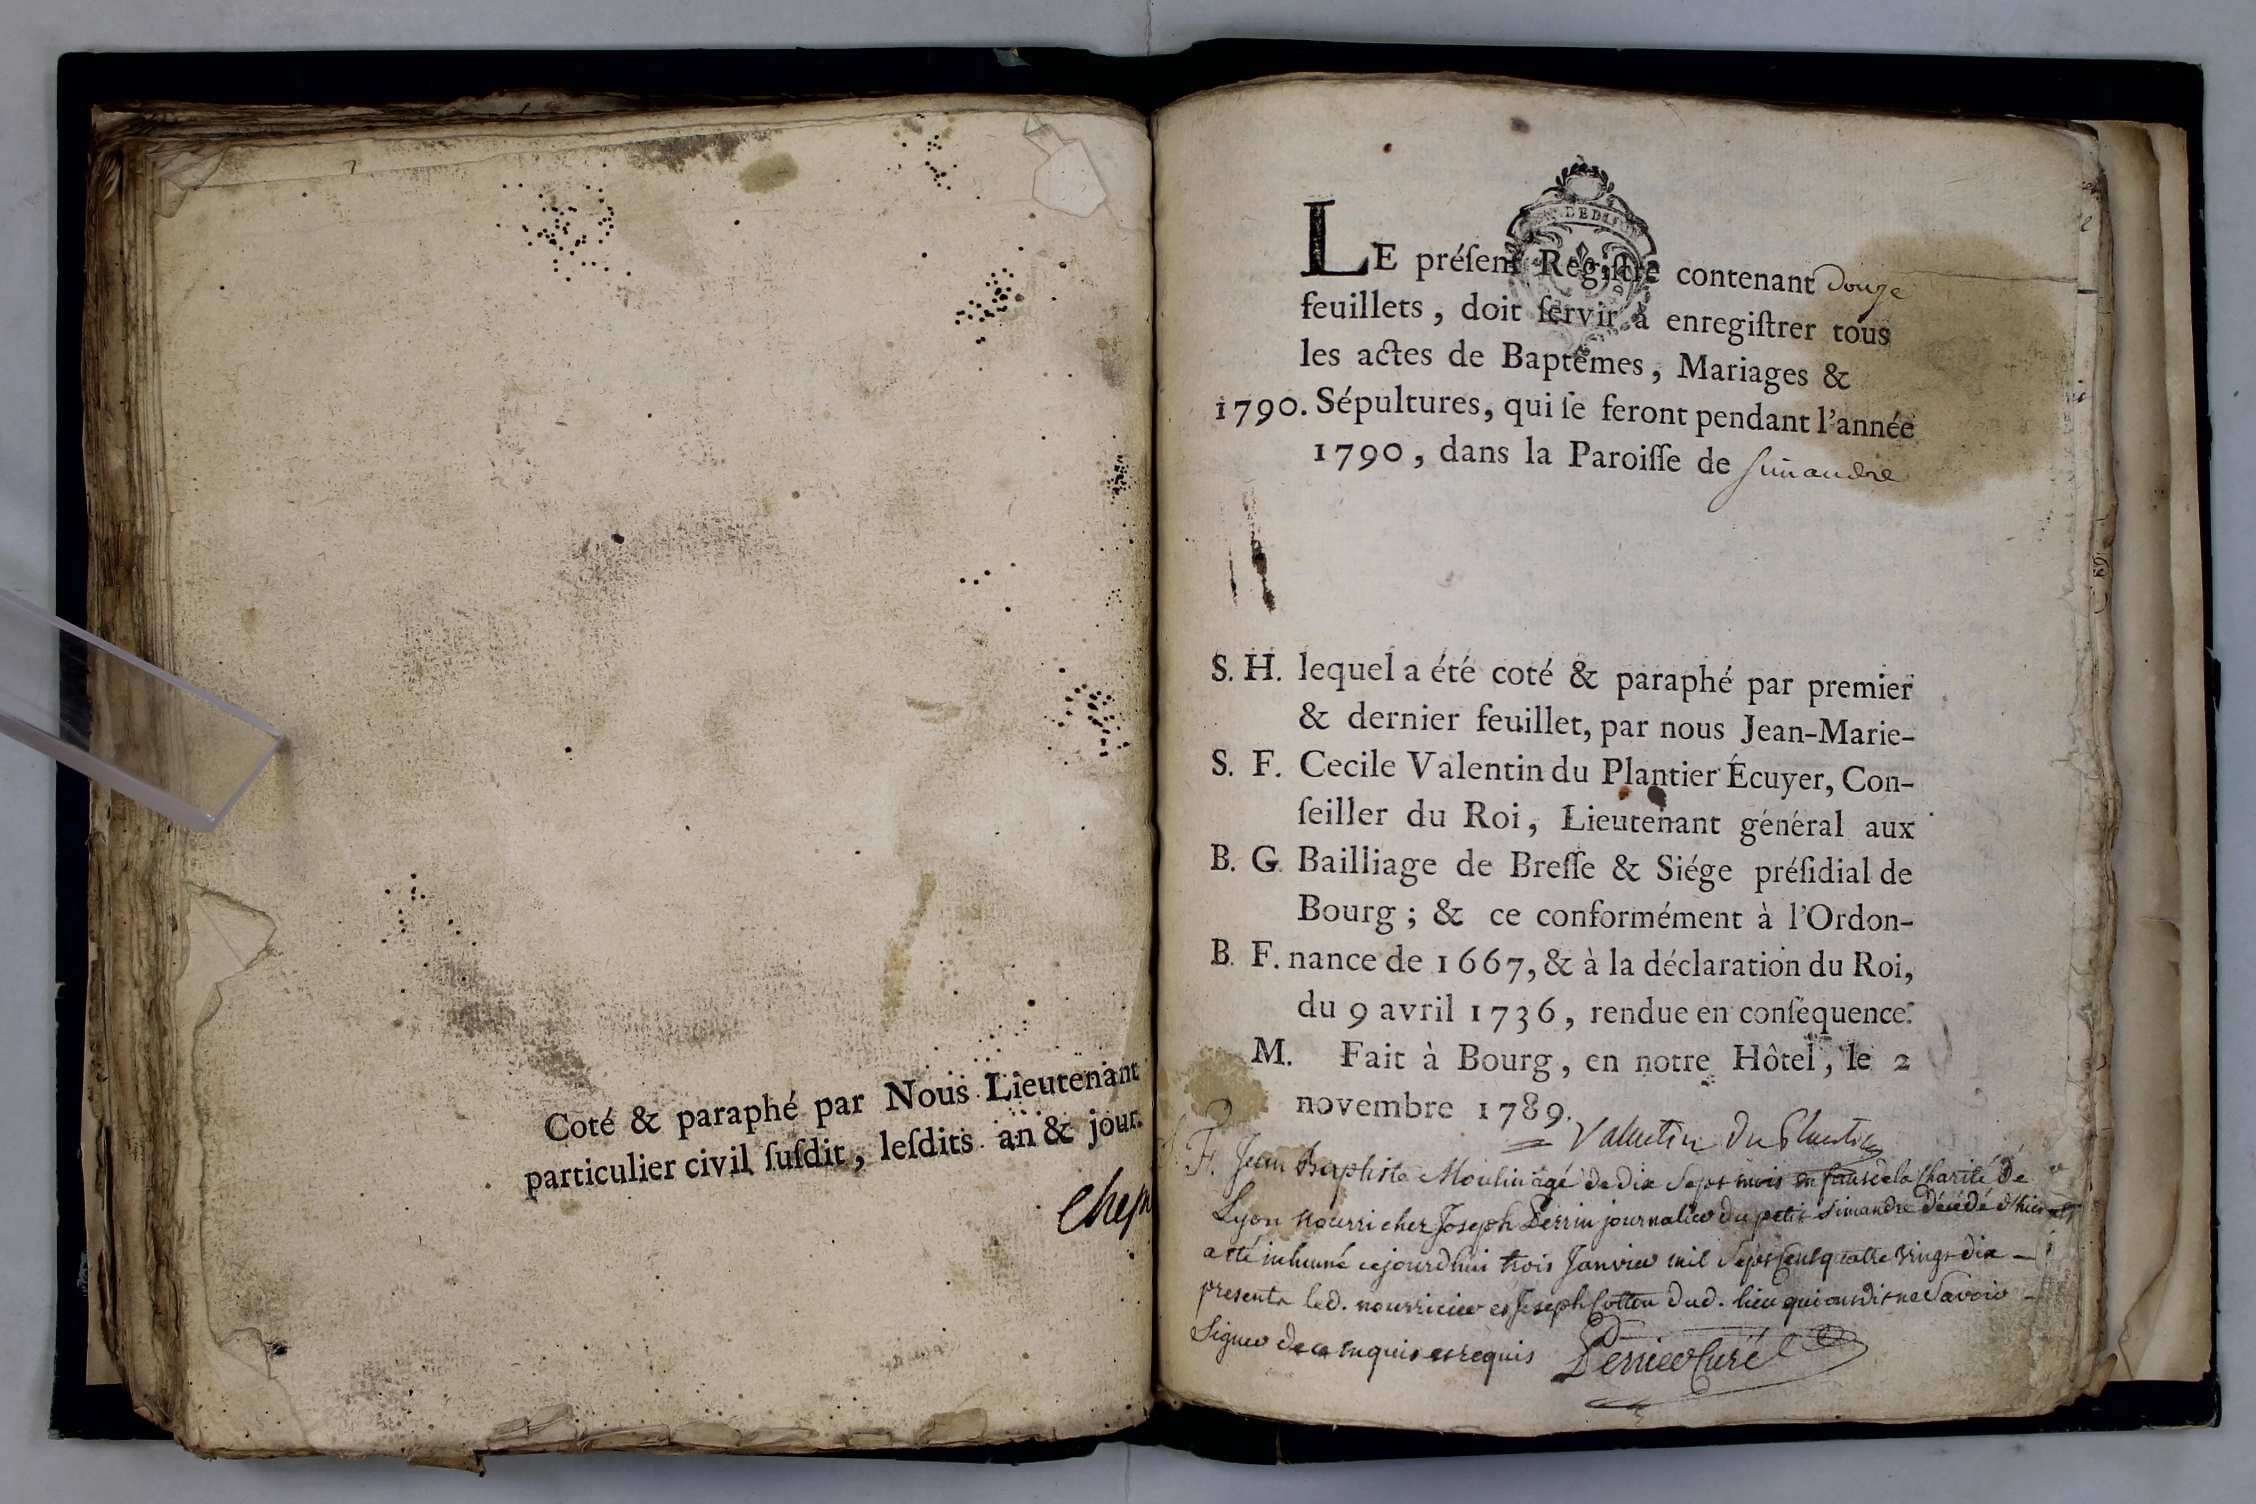 Coté & paraphé par Nous Lieutenant
particulier civil ſuſdit, leſdits an & jour.
Chep
DEDIS
LE préſent Regiſtre contenant Douze
feuillets, doit ſervir à enregiſtrer tous
les actes de Baptêmes, Mariages &
1790. Sépultures, qui ſe feront pendant l'année
1790, dans la Paroiſſe de Simandre
S. H. lequel a été coté & paraphé par premier
& dernier feuillet, par nous Jean-Marie-
S. F. Cecile Valentin du Plantier Écuyer, Con-
ſeiller du Roi, Lieutenant général aux
B. G. Bailliage de Breſſe & Siége préſidial de
Bourg ; & ce conformément à l'Ordon-
B. F. nance de 1667, & à la déclaration du Roi,
du 9 avril 1736, rendue en conſéquence.
M. Fait à Bourg, en notre Hôtel, le 2
novembre 1789.
Valentin Du Plantier
F. Jean Baptiste Moulin agé de dix Sept mois la Charité De
Lyon nourri chez Joseph Perrin journalier du petit Simandre décédé d'hier
a été inhumé cejourdhui trois Janvier mil Sept Cent quatre vingt dix
presents led. nourricier et Joseph Cotton dud. lieu qui ont dit ne Savoir
Signer de ce enquis et requis Perrier Curé